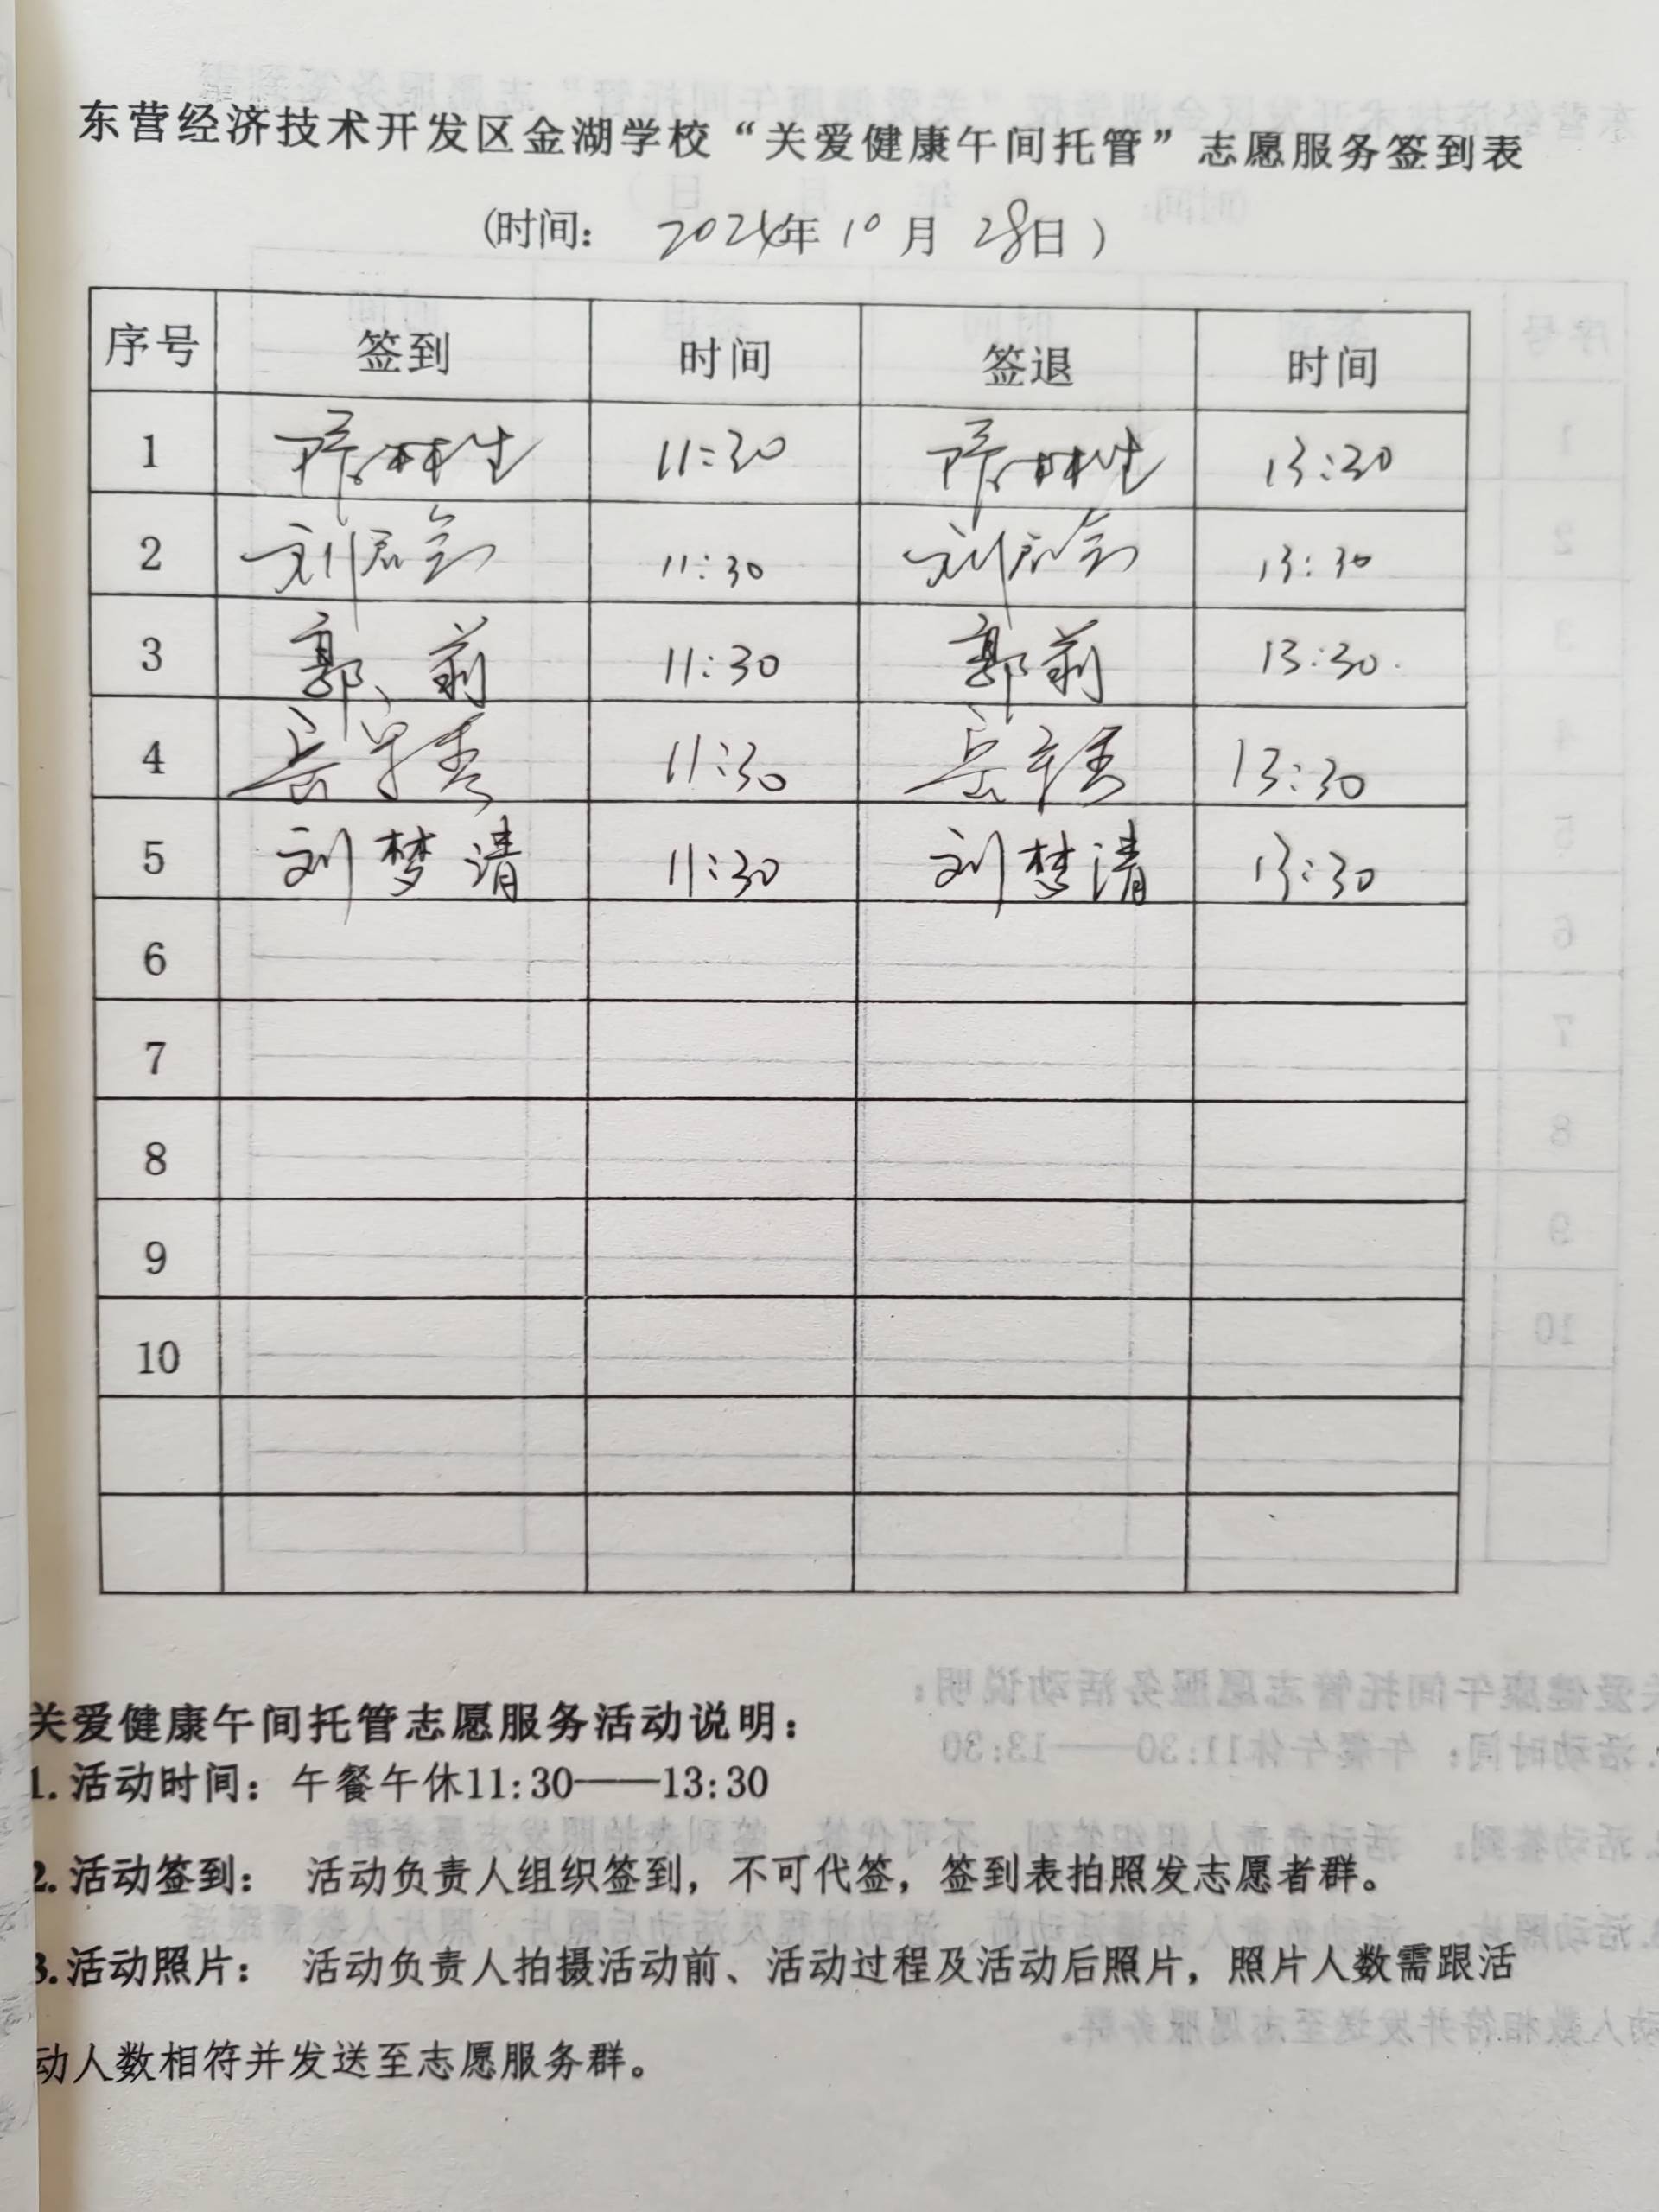 东营经济技术开发区金湖学校“关爱健康午间托管”志愿服务签到表
(时间: 2024年10月28日)
序号 签到 时间 签退 时间
1 11:30 13:30
2 刘君会 11:30 刘君会 13:30
3 郭莉 11:30 郭莉 13:30.
4 岳 秀 11:30 岳 秀 13:30
5 刘梦清 11:30 刘梦清 13:30
6
7
8
9
10
关爱健康午间托管志愿服务活动说明:
1.活动时间: 午餐午休11:30——13:30
2.活动签到: 活动负责人组织签到,不可代签,签到表拍照发志愿者群。
3.活动照片: 活动负责人拍摄活动前、活动过程及活动后照片,照片人数需跟活
动人数相符并发送至志愿服务群。